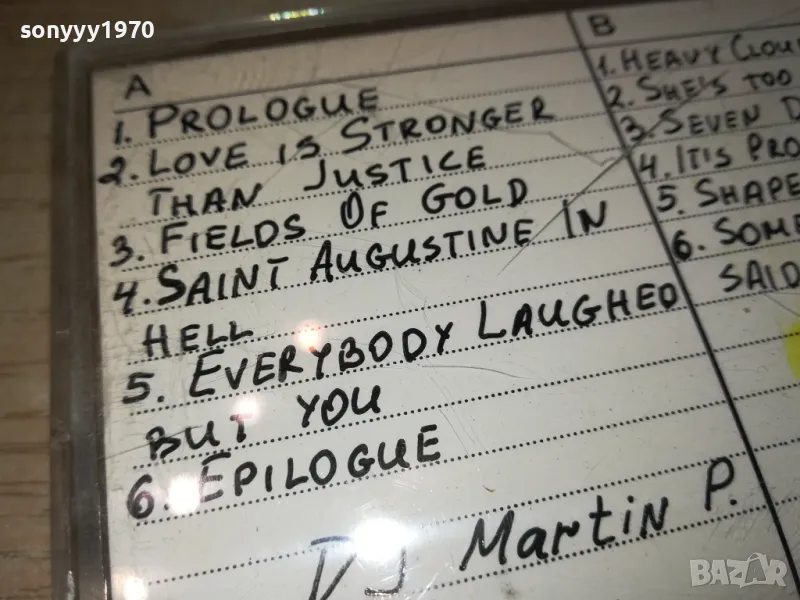 sonyyy1970
A
1. PROLOGUE
2. LOVE IS STRONGER
THAN JUSTICE
3. FIELDS OF GOLD
4. SAINT AUGUSTINE IN
HELL
5. EVERYBODY LAUGHED
BUT YOU
6. EPILOGUE
DJ Martin P.
B
1. HEAVY CLOU
2. SHE'S TOO
3. SEVEN D
4. IT'S PRO
5. SHAPE
6. SOME
SAID
BAZAR